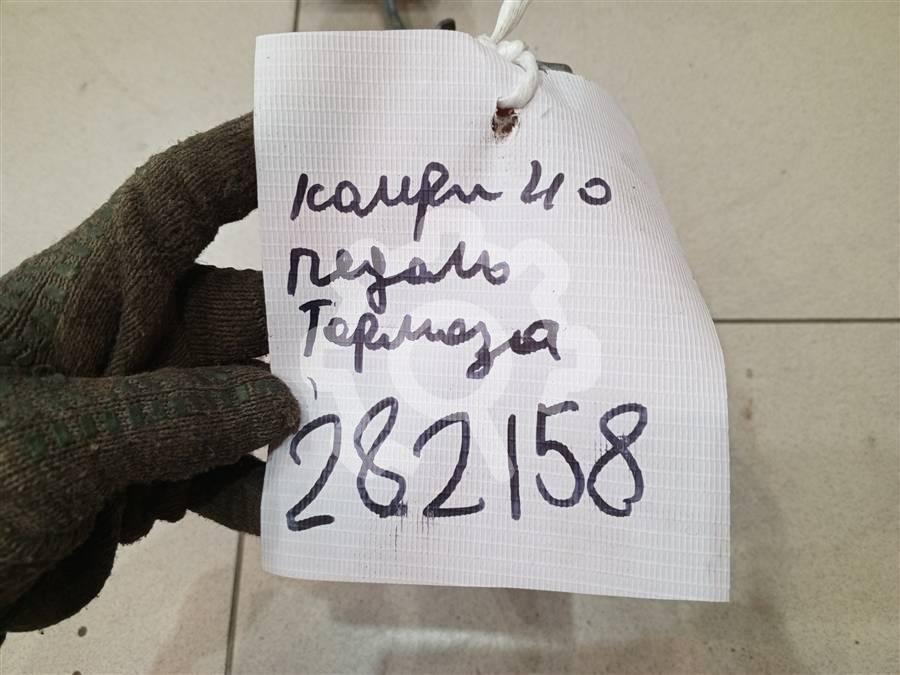 камри 40
педаль
Тормоза
282158